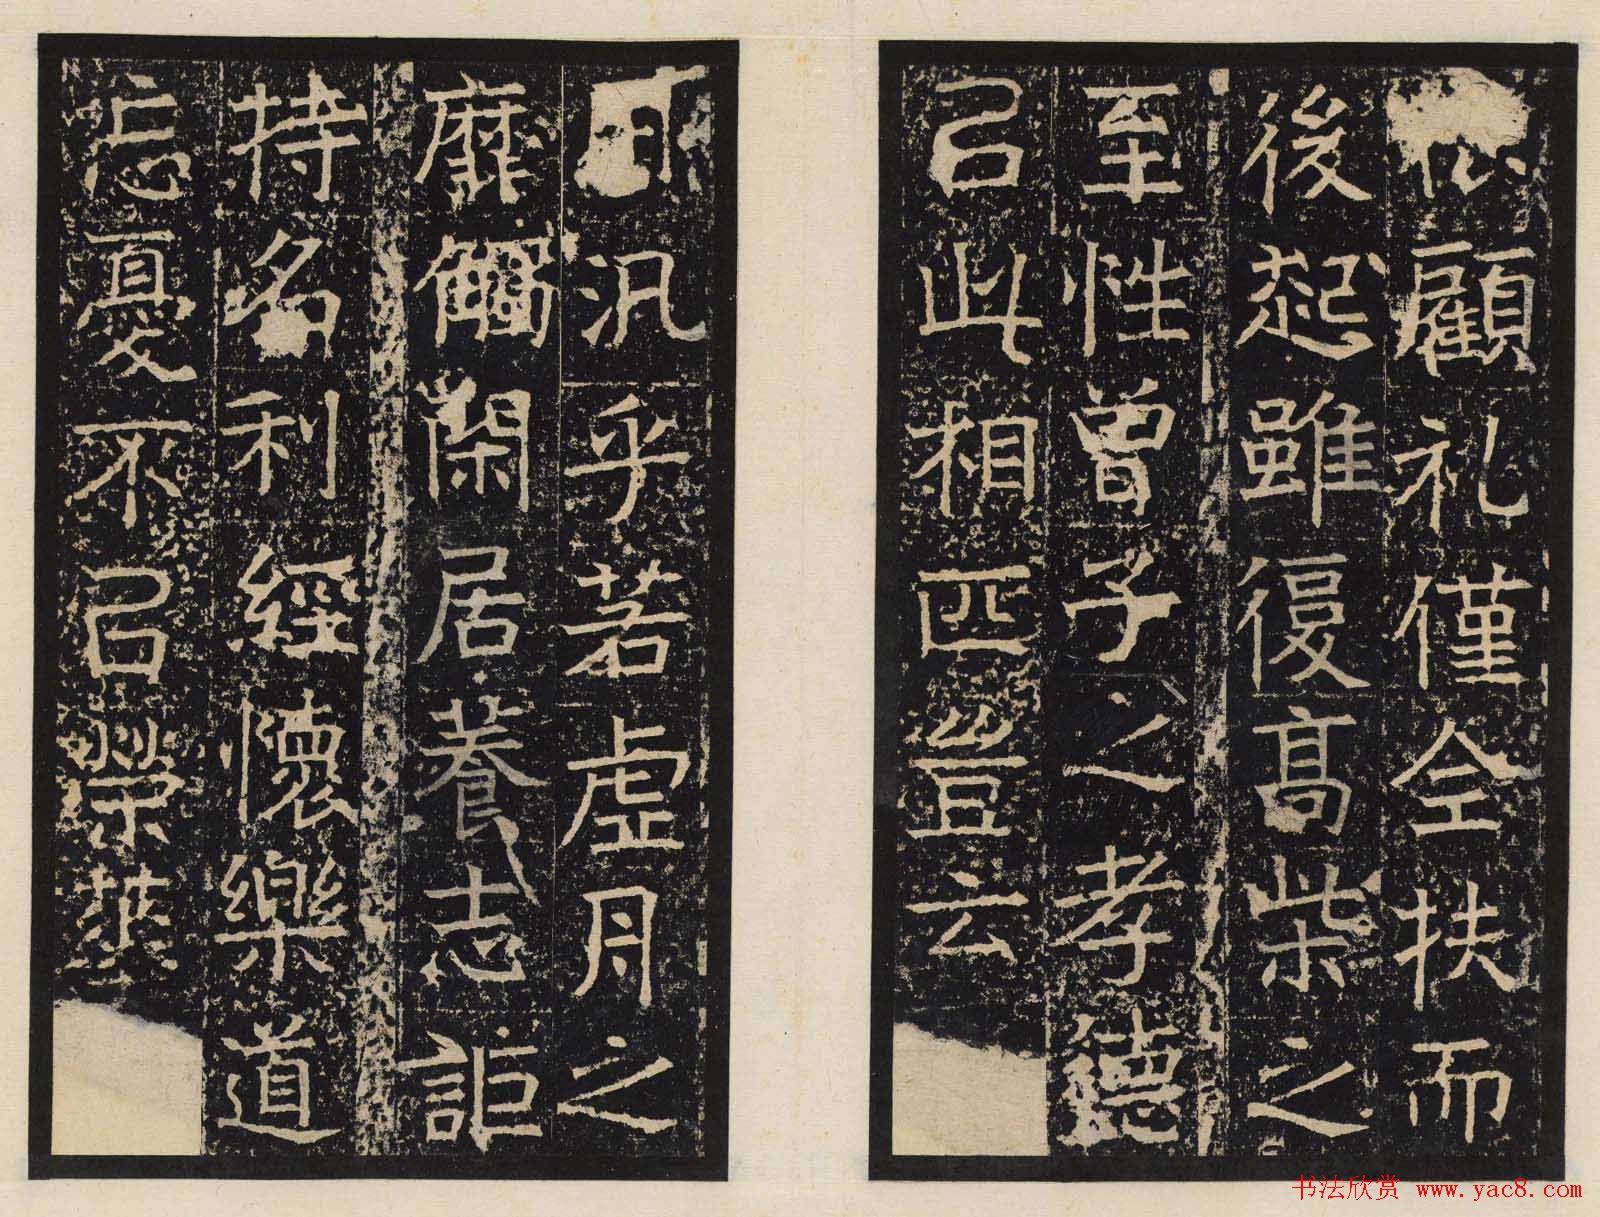 顧礼僅全扶而
後起雖復高柴之
至性曾子之孝德
㠯此相匹豈云
汎乎若虛舟之
靡觸閑居養志詎
持名利經懷樂道
忘憂不㠯榮華
书法欣赏 www.yac8.com